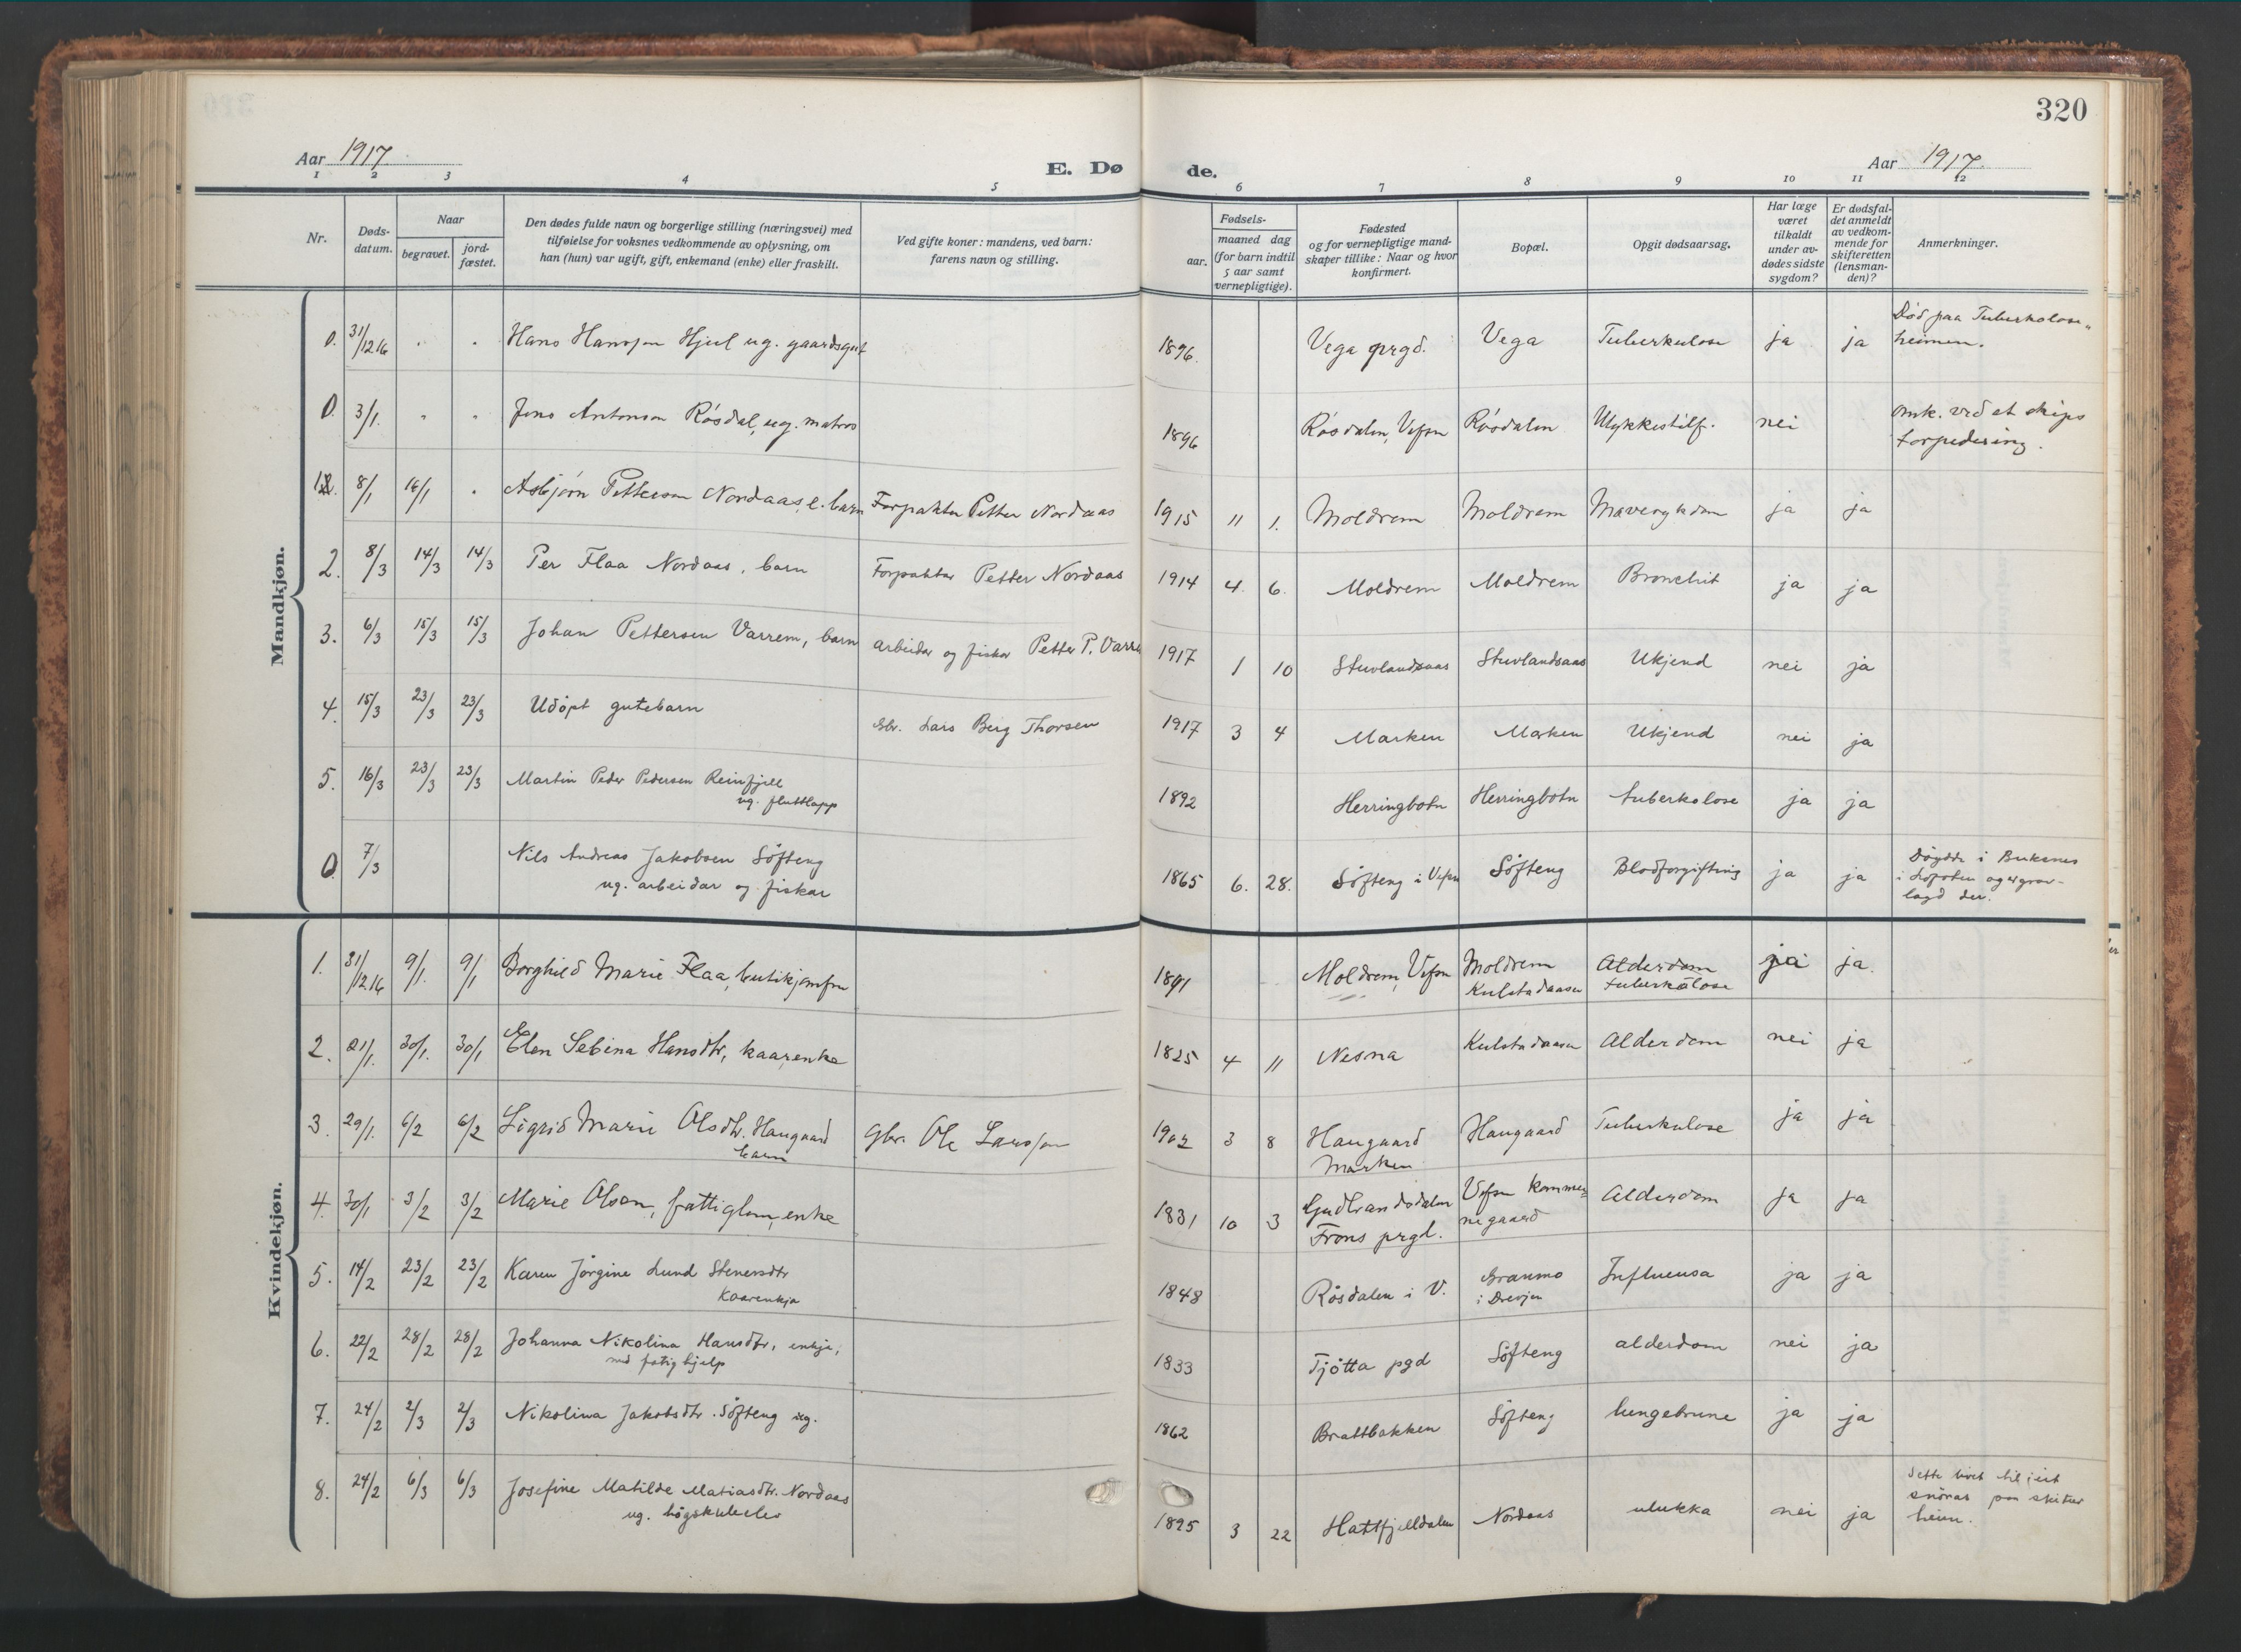 320
Aar 1917 E. Dø de. Aar 1917.
1 2 3 4 5 6 7 8 9 10 11 12
Nr.
Døds-
datum.
Naar
begravet.
jord-
fæstet.
Den dødes fulde navn og borgerlige stilling (næringsvei) med
tilføielse for voksnes vedkommende av oplysning, om
han (hun) var ugift, gift, enkemand (enke) eller fraskilt.
Ved gifte koner: mandens, ved barn:
farens navn og stilling.
Fødsels-
aar.
maaned dag
(for barn indtil
5 aar samt
vernepligtige).
Fødested
og for vernepligtige mand-
skaper tillike: Naar og hvor
konfirmert.
Bopæl.
Opgit dødsaarsag.
Har læge
været
tilkaldt
under av-
dødes sidste
sygdom?
Er dødsfal-
det anmeldt
av vedkom-
mende for
skifteretten
(lensman-
den)?
Anmerkninger.
Mandkjøn.
0. 31/12 16 " " Hans Hanssen Hjul ug. gaardsgut 1896. Vega prgd. Vega Tuberkulose ja ja Död paa Tuberkolose-
heimen.
0. 3/1. " " Jens Antonson Rösdal, ug. matros 1896 Rösdalen, Vefsn Rösdalen Ulykkestilf. nei Omk. ved et skips
torpedering.
1. 8/1 16/1 " Asbjörn Petterson Nordaas, e. barn Forpakter Petter Nordaas 1915 11 1. Moldrem Moldrem Mavesykdom ja ja
2. 8/3 14/3 14/3 Per Flaa Nordaas, barn Forpaktar Petter Nordaas 1914 4. 6. Moldrem Moldrem Bronchit ja ja
3. 6/3 15/3 15/3 Johan Pettersen Varrem, barn arbeidar og fiskar Petter P. Varre 1917 1 10 Stuvlandsaas Stuvlandsaas Ukjend nei ja
4. 15/3 23/3 23/3 Udöpt gutebarn Gbr. Lars Berg Thorsen 1917 3 4 Marken Marken Ukjend nei ja
5. 16/3 23/3 23/3 Martin Peder Pedersen Reinfjell
ug. fluttlapp 1892 Herringbotn Herringbotn tuberkolose ja ja
0. 7/3 Nils Andreas Jakobsen Söfteng
ug. arbeidar og fiskar 1865 6. 28. Söfteng i Vefsn Söfteng Blodforgiftning ja ja Döydde i Buksnes
i Lofoten og er grav-
lagd der.
Kvindekjøn.
1. 31/12 16 9/1. 9/1 Borghild Marie Flaa, butikjomfru 1891 Moldrem, Vefsn Moldrem
Kulstadaasen Alderdom
tuberkulose ja ja.
2. 21/1. 30/1. 30/1 Elen Sebina Hansdtr, kaarenke 1825 4 11 Nesna Kulstadaasen Alderdom nei ja
3. 29/1. 6/2 6/2 Sigrid Marie Olsdtr. Haugaard
barn Gbr. Ole Larssen 1902 3 8 Haugaard
Marken Haugaard Tuberkulose ja ja
4. 30/1 3/2 3/2 Marie Olsen, fattiglem, enke 1831 10 3 Gudbrandsdalen
Frons prgd. Vefsn kommu-
negaard Alderdom ja ja
5. 14/2 23/2 23/2 Karen Jörgine Lund Stenersdtr
Kaarenkja 1848 Rösdalen i V. Granmo
i Drevjen Influensa ja ja
6. 22/2 28/2 28/2 Johanna Nikolina Hansdtr, enkje,
med fatighjelp 1833 Tjötta pgd Söfteng alderdom nei ja
7. 24/2 2/3 2/3 Nikolina Jakobsdtr. Söfteng ug. 1862 Brattbakken Söfteng lungebrune ja ja
8. 24/2 6/3 6/3 Josefine Matilde Matiasdtr. Nordaas
ug. högskuleelev 1895 3 22 Hattfjelldalen Nordaas ulukka nei ja Sette livet til i eit
snöras paa skitur
heim.